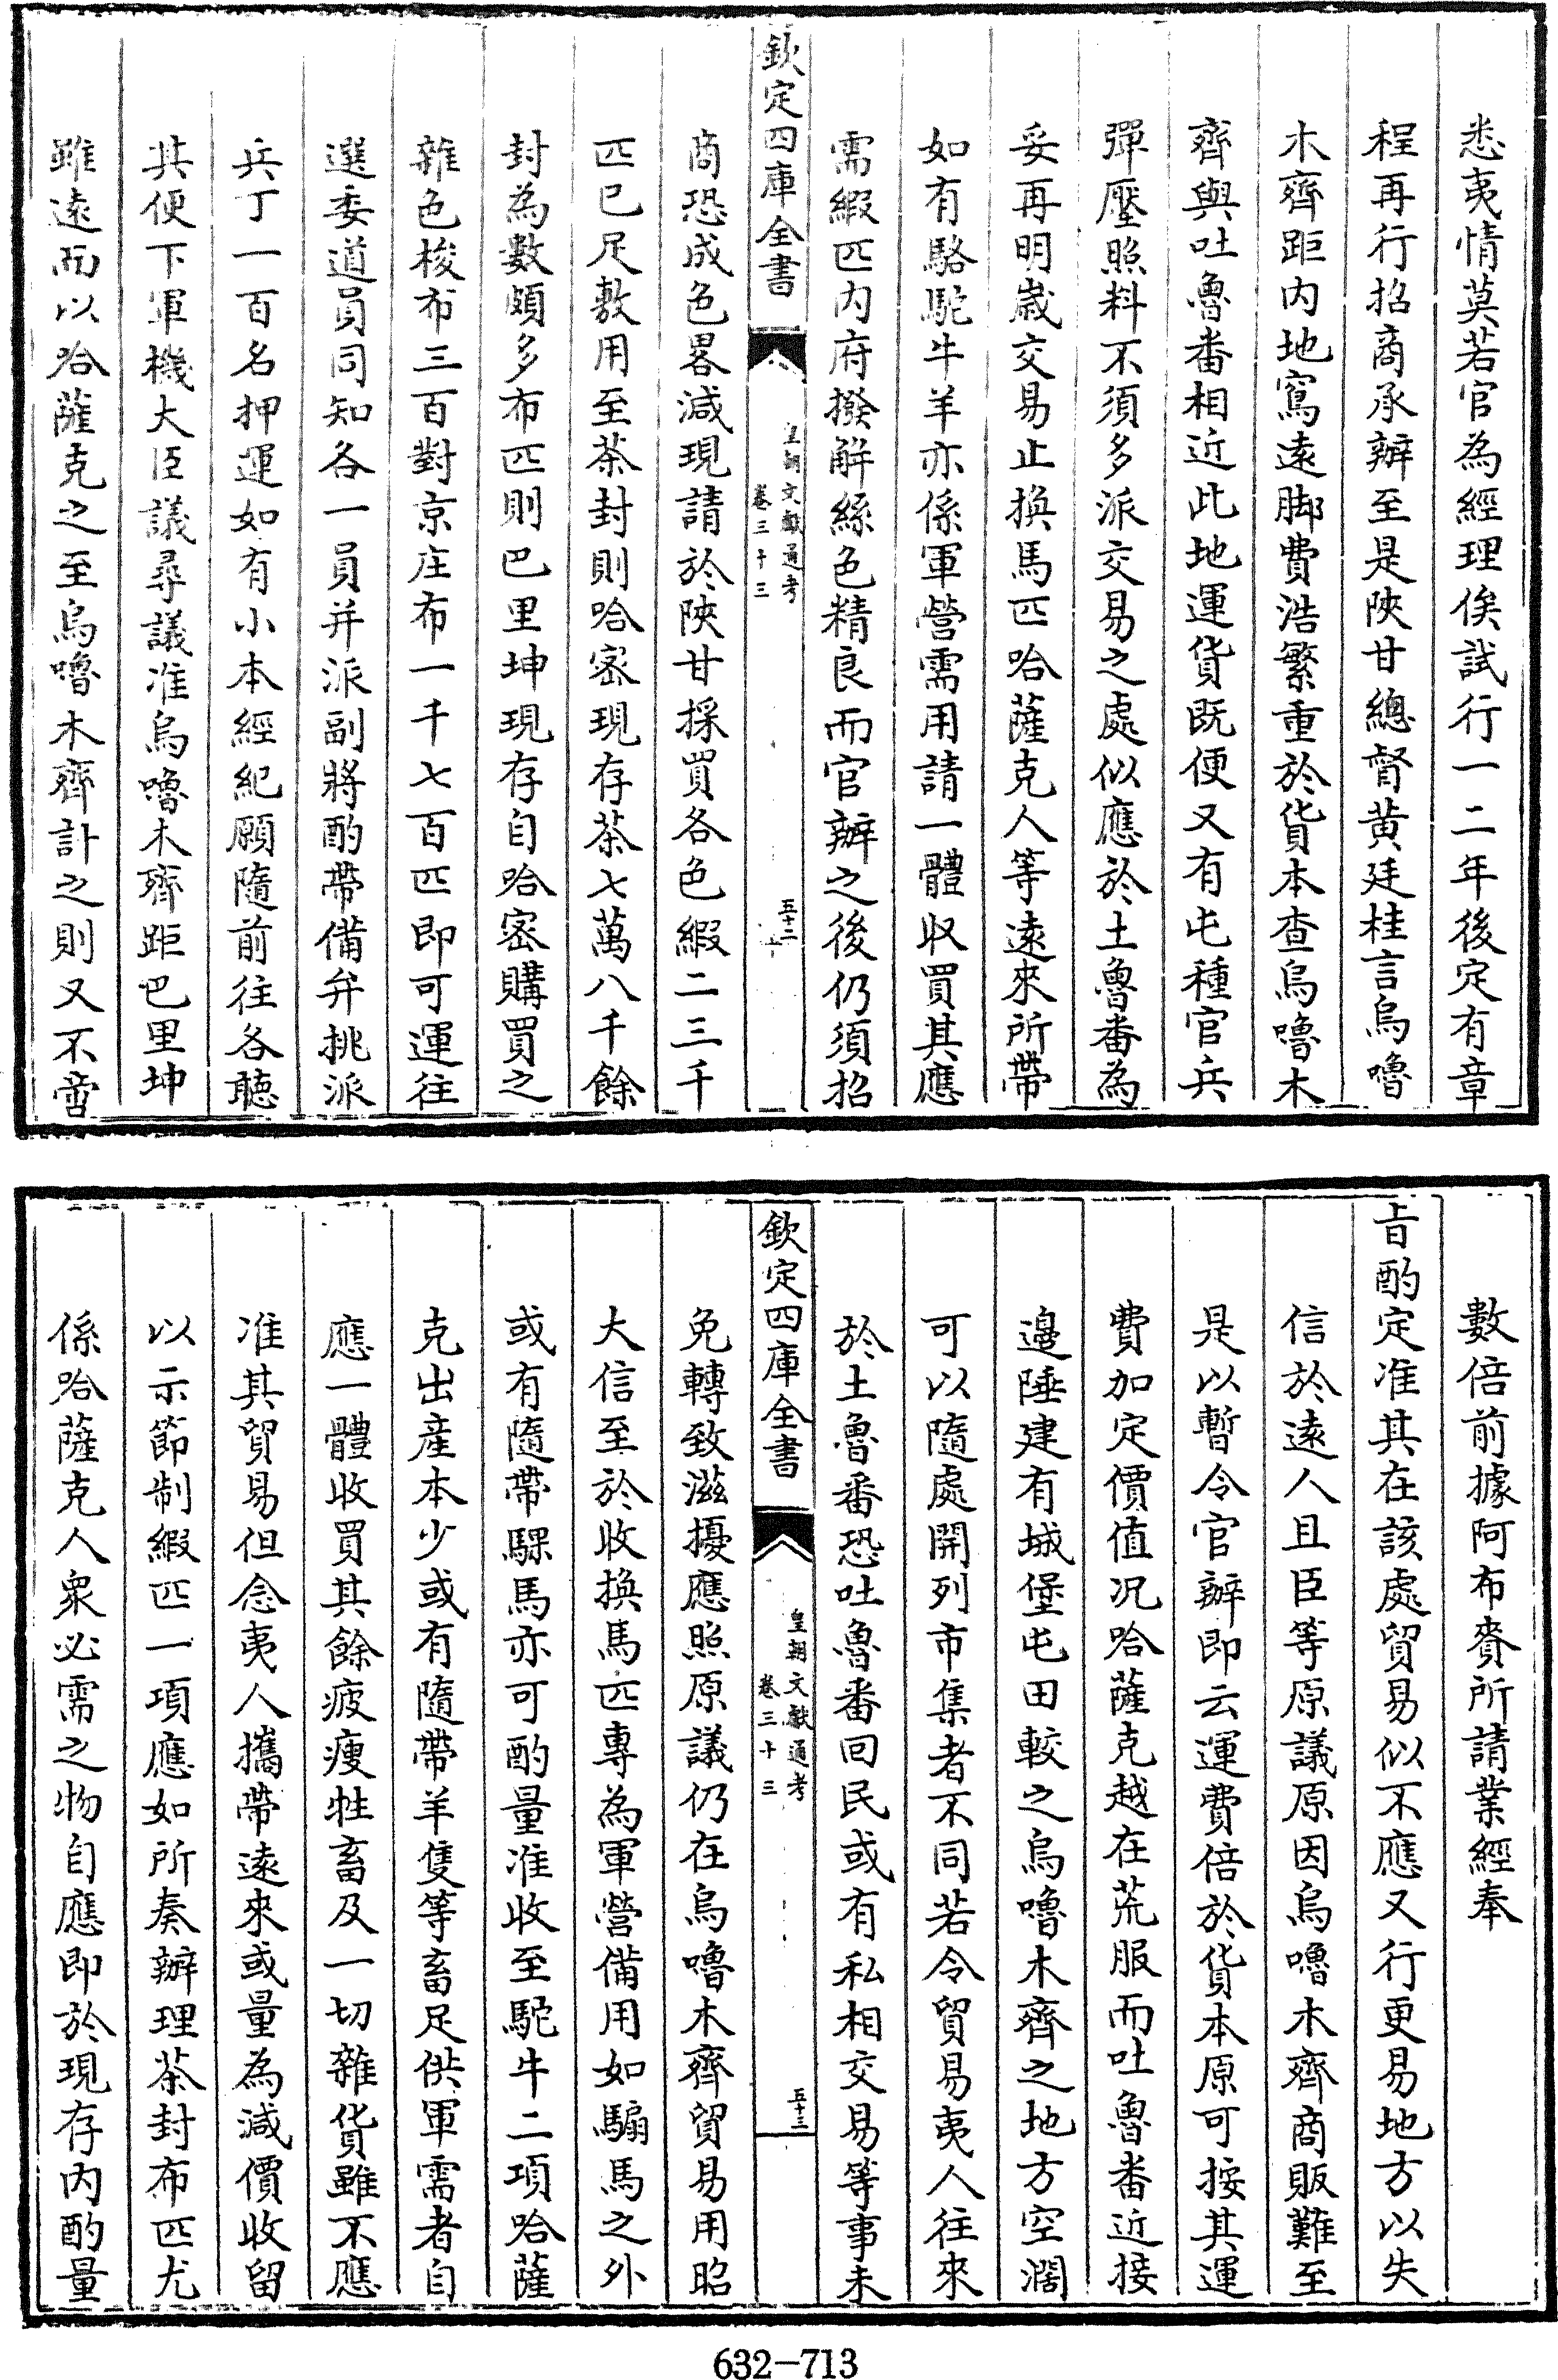 悉夷情莫若官為經理俟試行一二年後定有章
程再行招商承辦至是陜甘總督黄廷桂言烏嚕
木齊距内地窵遠脚費浩繁重於貨本查烏嚕木
齊與吐魯番相近此地運貨既便又有屯種官兵
彈壓照料不須多派交易之處似應於土魯番為
妥再明嵗交易止換馬匹哈薩克人等遠來所帶
如有駱駝牛羊亦係軍營需用請一體收買其應
需緞匹内府撥解絲色精良而官辦之後仍須招
欽定四庫全書
皇朝文獻通考
卷三十三
五十二
商恐成色畧減現請於陜甘採買各色緞二三千
匹已足敷用至茶封則哈密現存茶七萬八千餘
封為數頗多布匹則巴里坤現存自哈密購買之
雜色梭布三百對京庄布一千七百匹即可運往
選委道員同知各一員并派副將酌帶備弁挑派
兵丁一百名押運如有小本經紀願隨前往各聽
其便下軍機大臣議尋議准烏嚕木齊距巴里坤
雖遠而以哈薩克之至烏嚕木齊計之則又不啻
數倍前據阿布賚所請業經奉
㫖酌定准其在該處貿易似不應又行更易地方以失
信於遠人且臣等原議原因烏嚕木齊商販難至
是以暫令官辦即云運費倍於貨本原可按其運
費加定價值况哈薩克越在荒服而吐魯番近接
邉陲建有城堡屯田較之烏嚕木齊之地方空濶
可以隨處開列市集者不同若令貿易夷人往來
於土魯番恐吐魯番回民或有私相交易等事未
欽定四庫全書
皇朝文獻通考
卷三十三
五十三
免轉致滋擾應照原議仍在烏嚕木齊貿易用昭
大信至於收換馬匹專為軍營備用如騸馬之外
或有隨帶騍馬亦可酌量准收至駝牛二項哈薩
克出産本少或有隨帶羊隻等畜足供軍需者自
應一體收買其餘疲瘦牲畜及一切雜貨雖不應
准其貿易但念夷人攜帶遠來或量為減價收留
以示節制緞匹一項應如所奏辦理茶封布匹尤
係哈薩克人衆必需之物自應即於現存内酌量
632-713